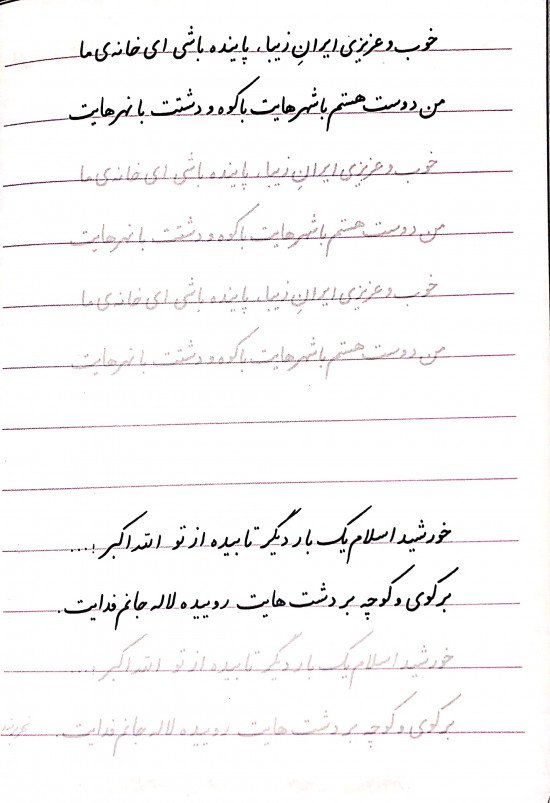 خوب و عزیزی ایرانِ زیبا، پاینده باشی ای خانه‌ی ما
من دوست هستم با شهرهایت با کوه و دشتت با نهرهایت
خوب و عزیزی ایرانِ زیبا، پاینده باشی ای خانه‌ی ما
من دوست هستم با شهرهایت با کوه و دشتت با نهرهایت
خوب و عزیزی ایرانِ زیبا، پاینده باشی ای خانه‌ی ما
من دوست هستم با شهرهایت با کوه و دشتت با نهرهایت
خورشید اسلام یک بار دیگر تابیده از تو الله اکبر!...
بر کوی و کوچه بر دشت هایت روییده لاله جانم فدایت.
خورشید اسلام یک بار دیگر تابیده از تو الله اکبر!...
بر کوی و کوچه بر دشت هایت روییده لاله جانم فدایت.